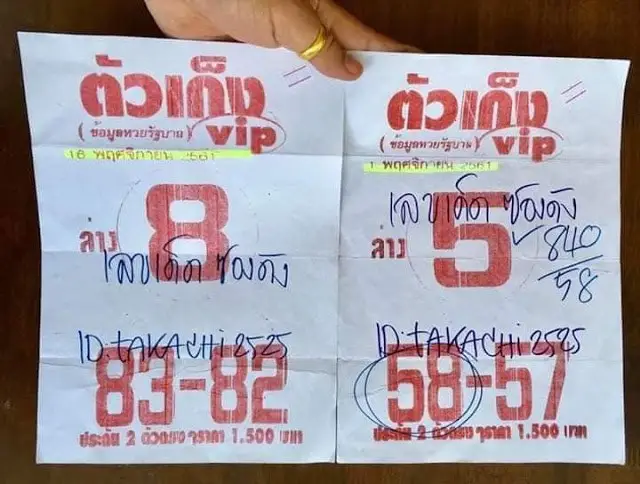 ตัวเก็ง
(ข้อมูลหวยรัฐบาล) vip
16 พฤศจิกายน 2561
ล่าง 8
เลขเด็ด ซองดัง
ID:TAKACHi2525
83-82
ประกัน 2 ตัวตรง ๆราคา 1.500 บาท
ตัวเก็ง
(ข้อมูลหวยรัฐบาล) vip
1 พฤศจิกายน 2561
เลขเด็ด ซองดัง
ล่าง 5
840
58
ID:TAKACHi2525
58-57
ประกัน 2 ตัวตรง ๆราคา 1.500 บาท